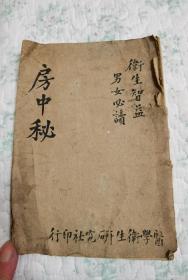 衛生智益
男女必讀
房中秘
醫學衛生研究社印行